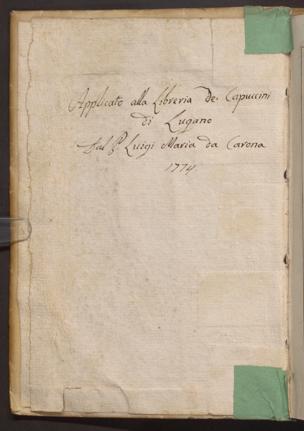 Applicato alla Libreria de Capuccini
di Lugano
Dal P. Luigi Maria da Carona
1774